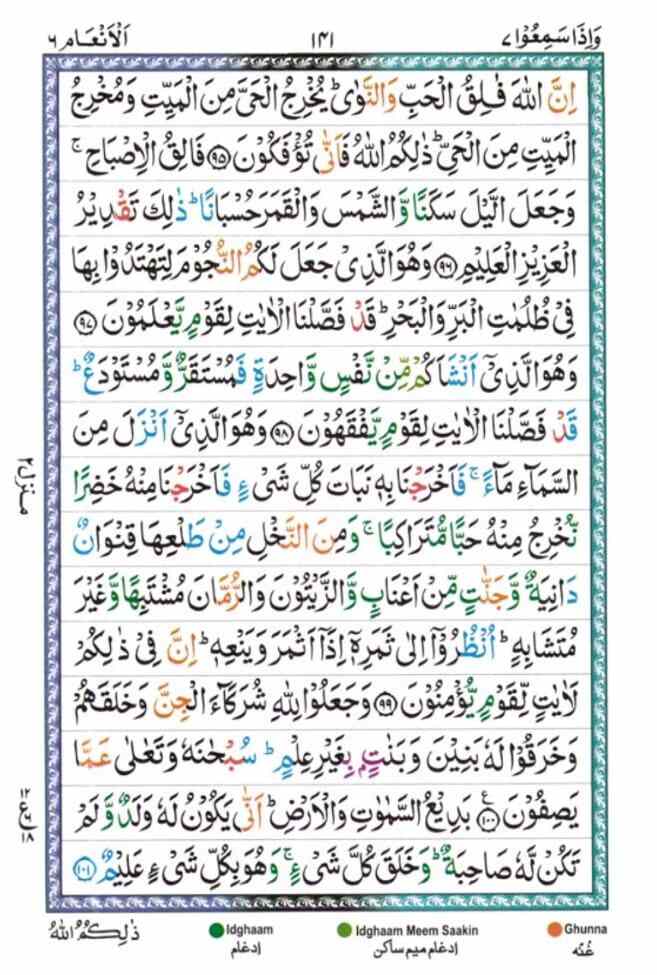 وَاِذَا سَمِعُوْا ۷
۱۴۱
اَلْاَنْعَام ۶
اِنَّ اللّٰهَ فٰلِقُ الْحَبِّ وَالنَّوٰىؕ يُخْرِجُ الْحَىَّ مِنَ الْمَيِّتِ وَمُخْرِجُ
الْمَيِّتِ مِنَ الْحَىِّؕ ذٰلِكُمُ اللّٰهُ فَاَنّٰى تُؤْفَكُوْنَ ۹۵ فَالِقُ الْاِصْبَاحِۚ
وَجَعَلَ الَّيْلَ سَكَنًا وَّالشَّمْسَ وَالْقَمَرَ حُسْبَانًاؕ ذٰلِكَ تَقْدِيْرُ
الْعَزِيْزِ الْعَلِيْمِ ۹۶ وَهُوَ الَّذِىْ جَعَلَ لَكُمُ النُّجُوْمَ لِتَهْتَدُوْا بِهَا
فِىْ ظُلُمٰتِ الْبَرِّ وَالْبَحْرِؕ قَدْ فَصَّلْنَا الْاٰيٰتِ لِقَوْمٍ يَّعْلَمُوْنَ ۹۷
وَهُوَ الَّذِىْۤ اَنْشَاَكُمْ مِّنْ نَّفْسٍ وَّاحِدَةٍ فَمُسْتَقَرٌّ وَّمُسْتَوْدَعٌؕ
قَدْ فَصَّلْنَا الْاٰيٰتِ لِقَوْمٍ يَّفْقَهُوْنَ ۹۸ وَهُوَ الَّذِىْۤ اَنْزَلَ مِنَ
السَّمَآءِ مَآءًۚ فَاَخْرَجْنَا بِهٖ نَبَاتَ كُلِّ شَىْءٍ فَاَخْرَجْنَا مِنْهُ خَضِرًا
نُّخْرِجُ مِنْهُ حَبًّا مُّتَرَاكِبًاۚ وَمِنَ النَّخْلِ مِنْ طَلْعِهَا قِنْوَانٌ
دَانِيَةٌ وَّجَنّٰتٍ مِّنْ اَعْنَابٍ وَّالزَّيْتُوْنَ وَالرُّمَّانَ مُشْتَبِهًا وَّغَيْرَ
مُتَشَابِهٍؕ اُنْظُرُوْۤا اِلٰى ثَمَرِهٖۤ اِذَاۤ اَثْمَرَ وَيَنْعِهٖؕ اِنَّ فِىْ ذٰلِكُمْ
لَاٰيٰتٍ لِّقَوْمٍ يُّؤْمِنُوْنَ ۹۹ وَجَعَلُوْا لِلّٰهِ شُرَكَآءَ الْجِنَّ وَخَلَقَهُمْ
وَخَرَقُوْا لَهٗ بَنِيْنَ وَبَنٰتٍۭ بِغَيْرِ عِلْمٍؕ سُبْحٰنَهٗ وَتَعٰلٰى عَمَّا
يَصِفُوْنَ ۱۰۰ بَدِيْعُ السَّمٰوٰتِ وَالْاَرْضِؕ اَنّٰى يَكُوْنُ لَهٗ وَلَدٌ وَّلَمْ
تَكُنْ لَّهٗ صَاحِبَةٌؕ وَخَلَقَ كُلَّ شَىْءٍۚ وَهُوَ بِكُلِّ شَىْءٍ عَلِيْمٌ ۱۰۱
منزل ۲
۱۲
ع
۱۸
ذٰلِكُمُ اللّٰهُ
Idghaam
ادغام
Idghaam Meem Saakin
ادغام میم ساکن
Ghunna
غُنّه